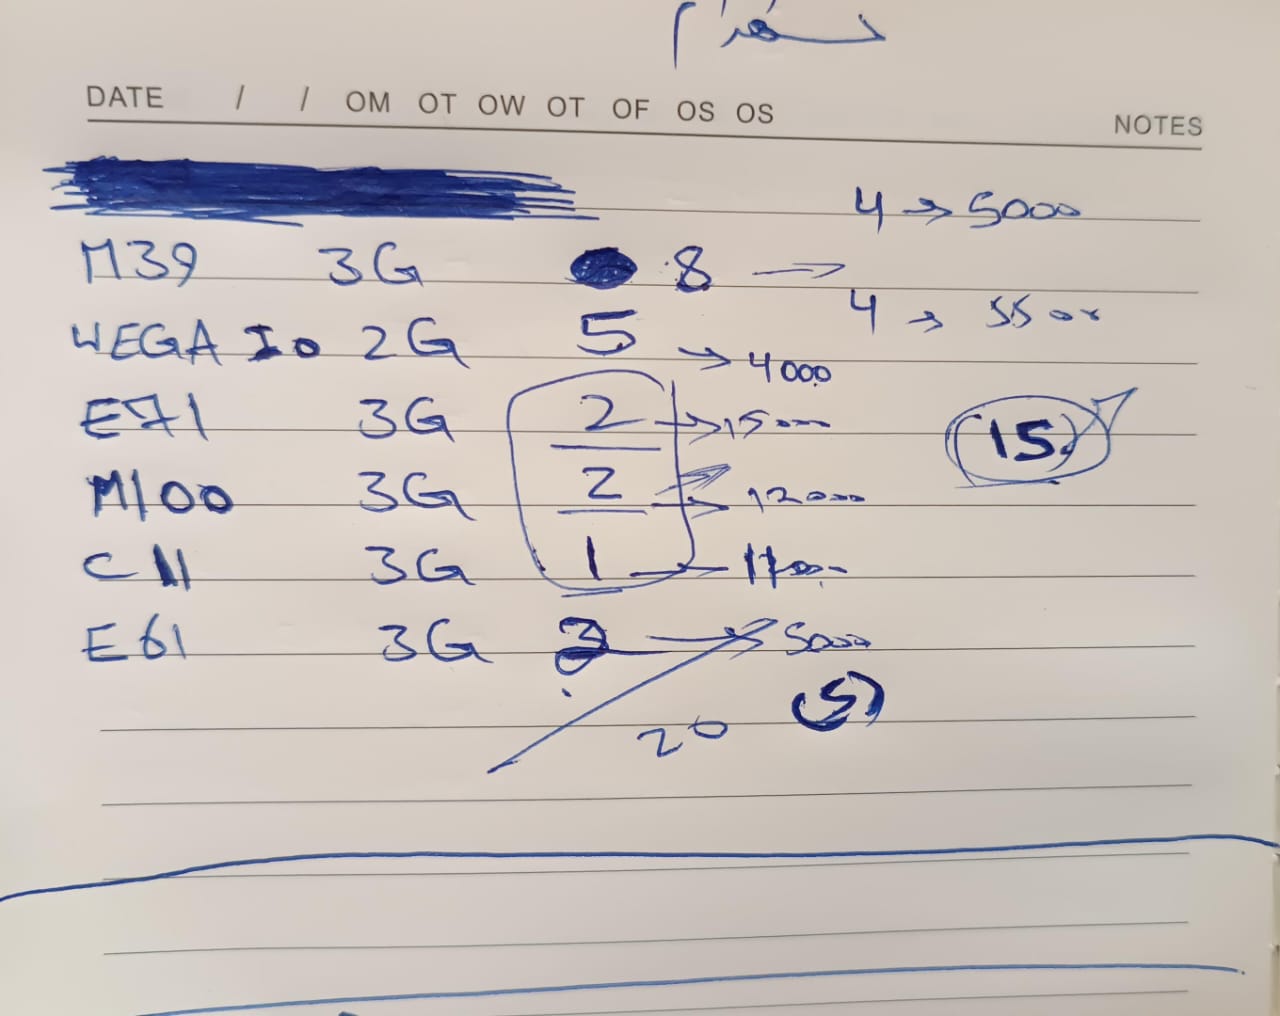 DATE / / OM OT OW OT OF OS OS
NOTES
4 → 5000
M39 3G 8 →
4 → 5500
WEGA IO 2G 5 → 4000
E71 3G 2 → 15000
15
M100 3G 2 → 12000
C11 3G 1 → 11000
E61 3G 2 → 5000
20 5